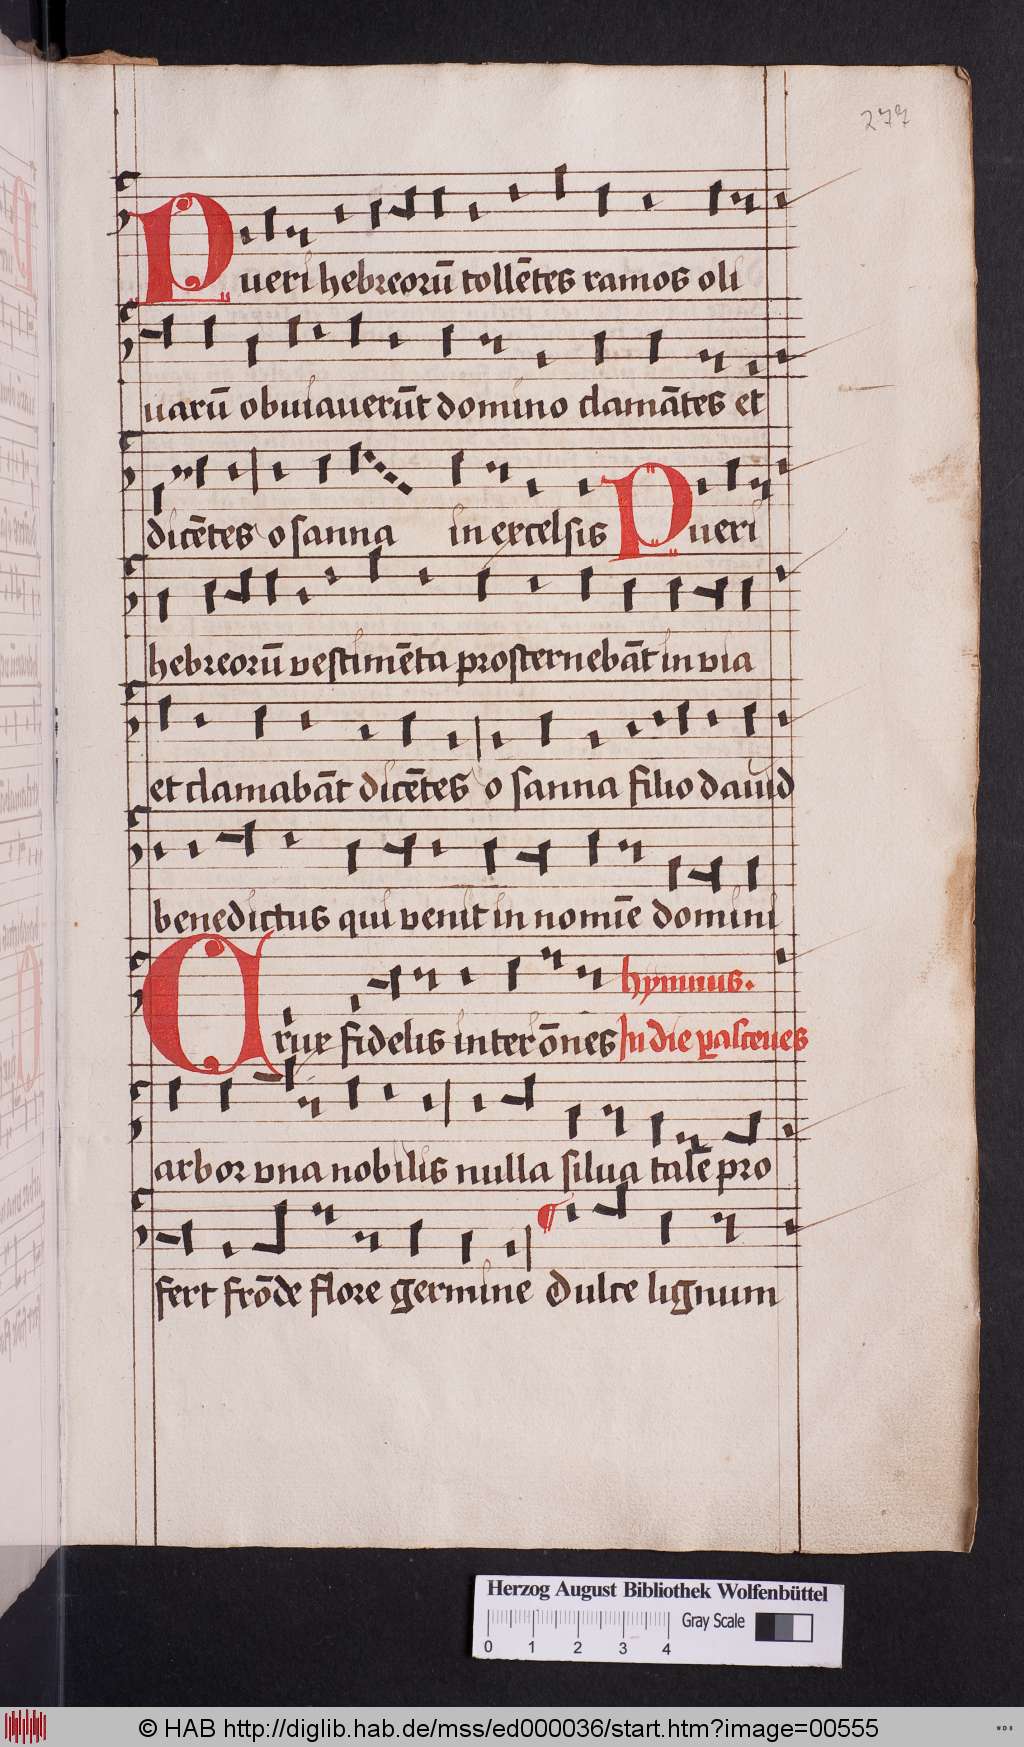 277
Pueri hebreorū tollētes ramos oli
uarū obuiauerūt domino clamātes et
dicētes o sanna in excelsis Pueri
hebreorū vestimēta prosternebāt in via
et clamabāt dicētes o sanna filio dauid
benedictus qui venit in nomīe domini
hymnus.
Crux fidelis inter ōnes In die pasceues
arbor vna nobilis nulla silua talē pro
fert frōde flore germine dulce lignum
Herzog August Bibliothek Wolfenbüttel
Gray Scale
0 1 2 3 4
© HAB http://diglib.hab.de/mss/ed000036/start.htm?image=00555